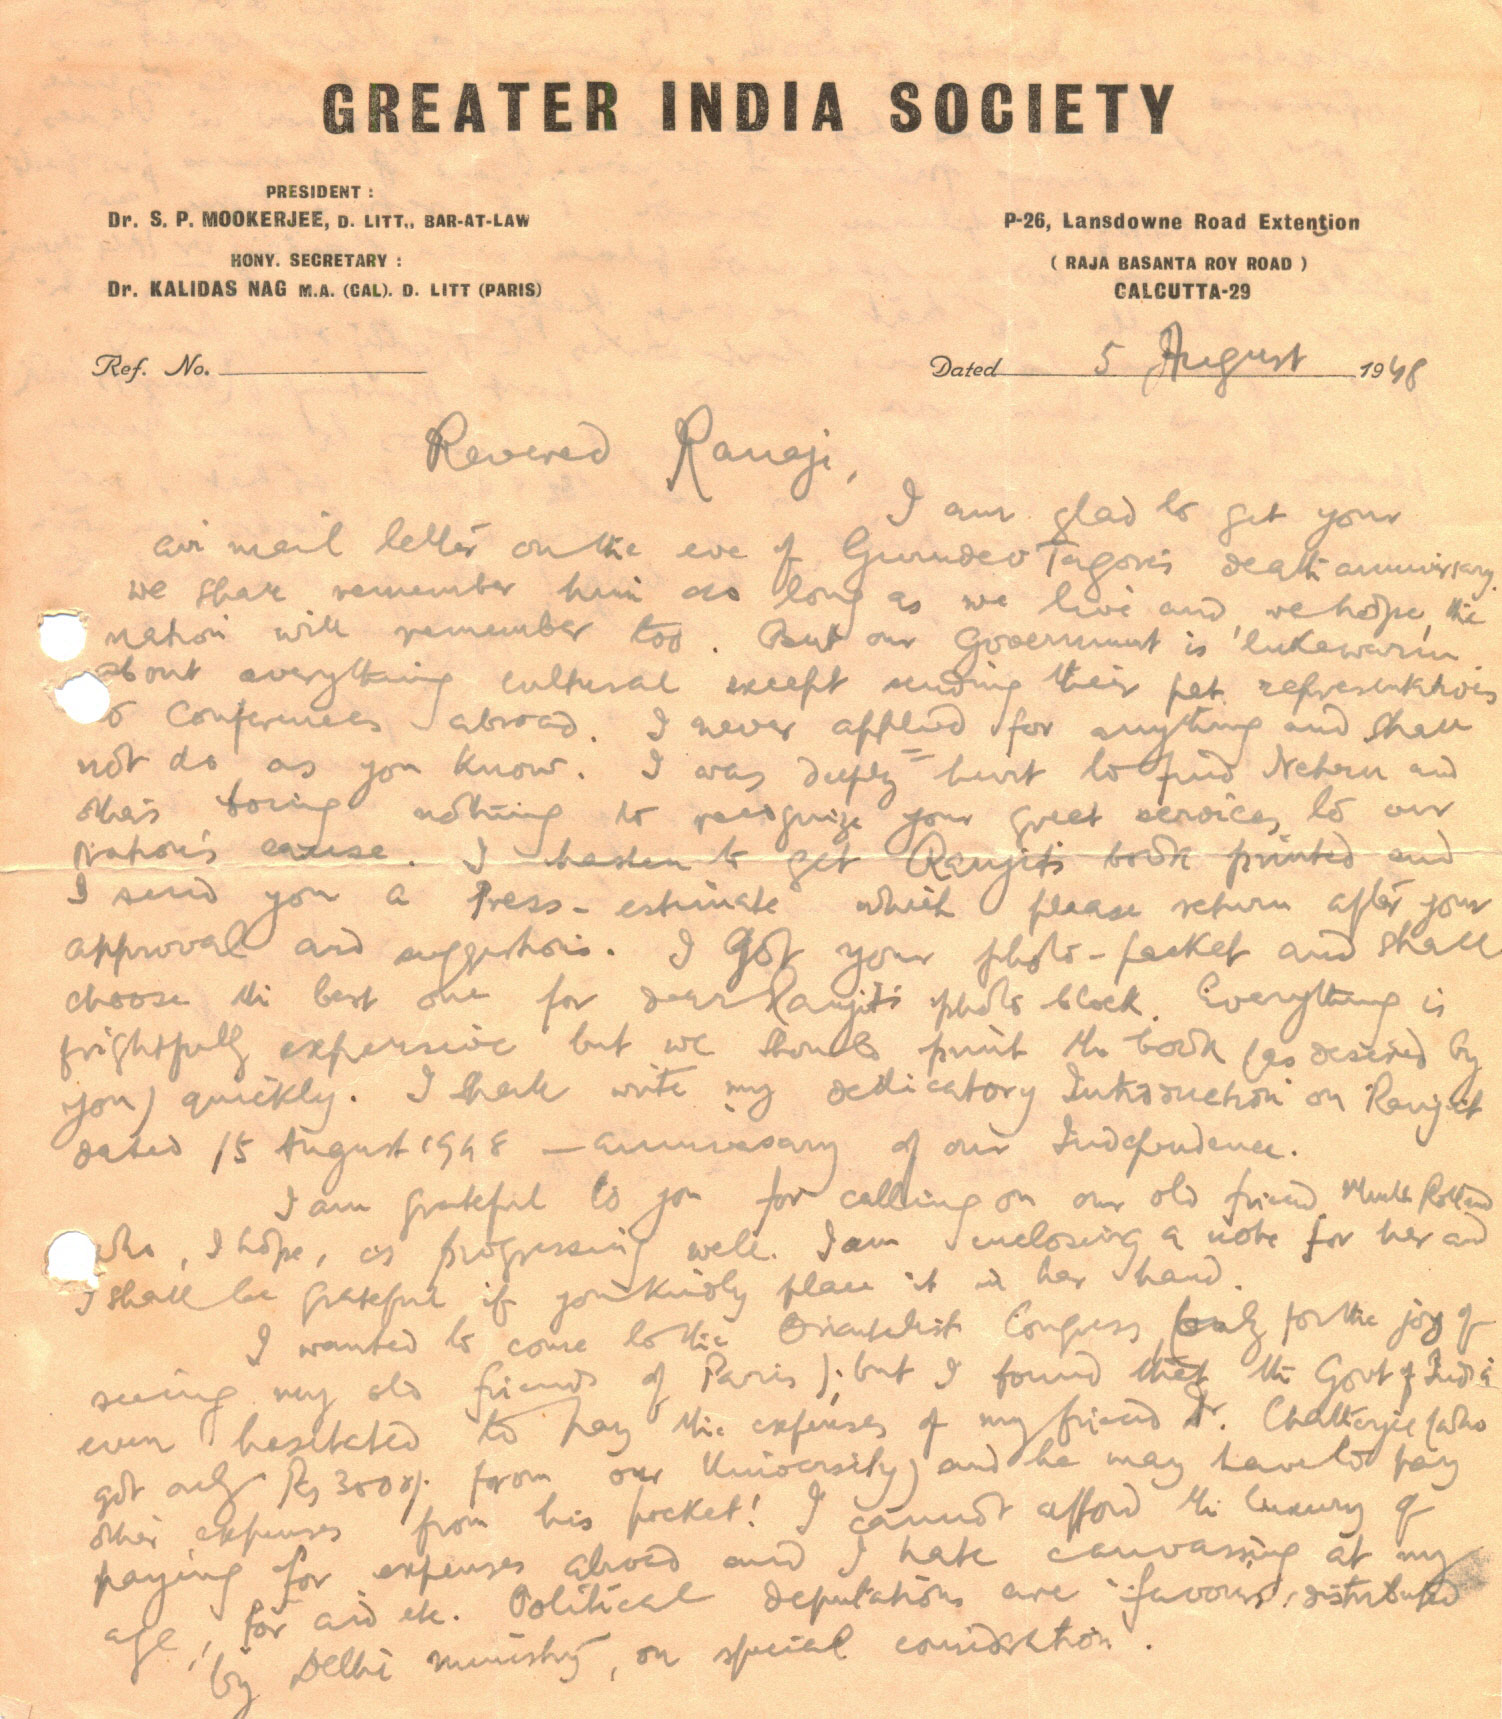 GREATER INDIA SOCIETY
PRESIDENT :
Dr. S. P. MOOKERJEE, D. LITT., BAR-AT-LAW
HONY. SECRETARY :
Dr. KALIDAS NAG M.A. (CAL). D. LITT (PARIS)
P-26, Lansdowne Road Extention
( RAJA BASANTA ROY ROAD )
CALCUTTA-29
Ref. No.
Dated 5 August 1948
Revered Ranaji,
I am glad to get your
air mail letter on the eve of Gurudev Tagore's death anniversary.
We shall remember him as long as we live and, we hope, the
nation will remember too. But our Government is 'lukewarm'
about everything cultural except sending their pet representatives
to Conferences abroad. I never applied for anything and shall
not do, as you know. I was deeply hurt to find Nehru and
others doing nothing to recognize your great services to our
Nation's cause. I hasten to get Ranjit's book printed and
I send you a Press-estimate which please return after your
approval and suggestions. I got your photo-packet and shall
choose the best one for dear Ranjit's photo block. Everything is
frightfully expensive but we should print the book (as desired by
you) quickly. I shall write my dedicatory Introduction on Ranjit
dated 15 August 1948 — anniversary of our Independence.
I am grateful to you for calling on our old friend Mlle Rolland
who, I hope, is progressing well. I am enclosing a note for her and
I shall be grateful if you kindly place it in her hand.
I wanted to come to the Orientalist Congress (only for the joy of
seeing my old friends of Paris); but I found that the Govt of India
even hesitated to pay the expenses of my friend Dr. Chatterjee (who
got only Rs 3000/- from our University) and he may have to pay
other expenses from his pocket! I cannot afford the luxury of
paying for expenses abroad and I hate canvassing at my
age, for aid etc. Political deputations are 'favours' distributed
by Delhi ministry, on special consideration.